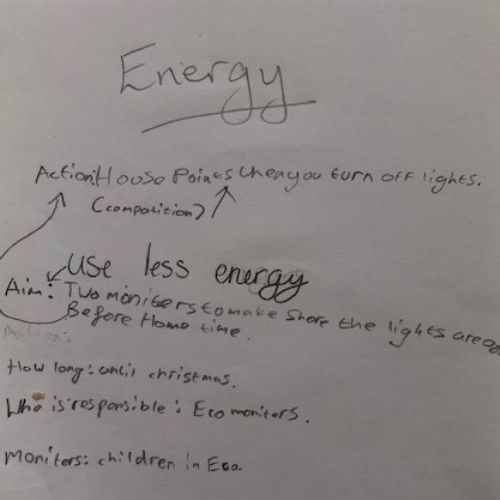 Energy
Action: House Points when you turn off lights.
(compotition)
Use less energy
Aim: Two moniters to make shore the lights are
Before Home time.
Action:
How long: until christmas.
Who is responsible: Eco moniters.
Moniters: children in Eco.